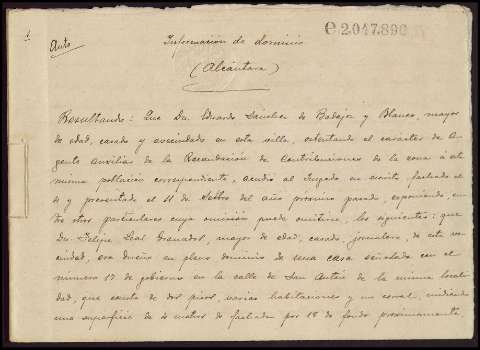 1
C 2.047.890
Auto
Información de dominio
(Alcántara)
Resultando: Que Dn. Eduardo Sánchez de Badajoz y Blanco, mayor
de edad, casado y avecindado en esta villa, ostentando el carácter de A-
gente Auxiliar de la Recaudación de Contribuciones de la zona á esta
misma población correspondiente, acudió al Juzgado en escrito fechado el
4 y presentado el 11 de Setbre del año próximo pasado, exponiendo, en
tre otros particulares cuya omisión puede omitirse, los siguientes: que
Dn. Felipe Leal Granados, mayor de edad, casado, jornalero, de esta ve-
cindad, era dueño en pleno dominio de una casa señalada con el
número 17 de gobierno en la calle de San Antón de la misma locali
dad, que consta de dos pisos, varias habitaciones y un corral, midiendo
una superficie de 4 metros de fachada por 18 de fondo próximamente,